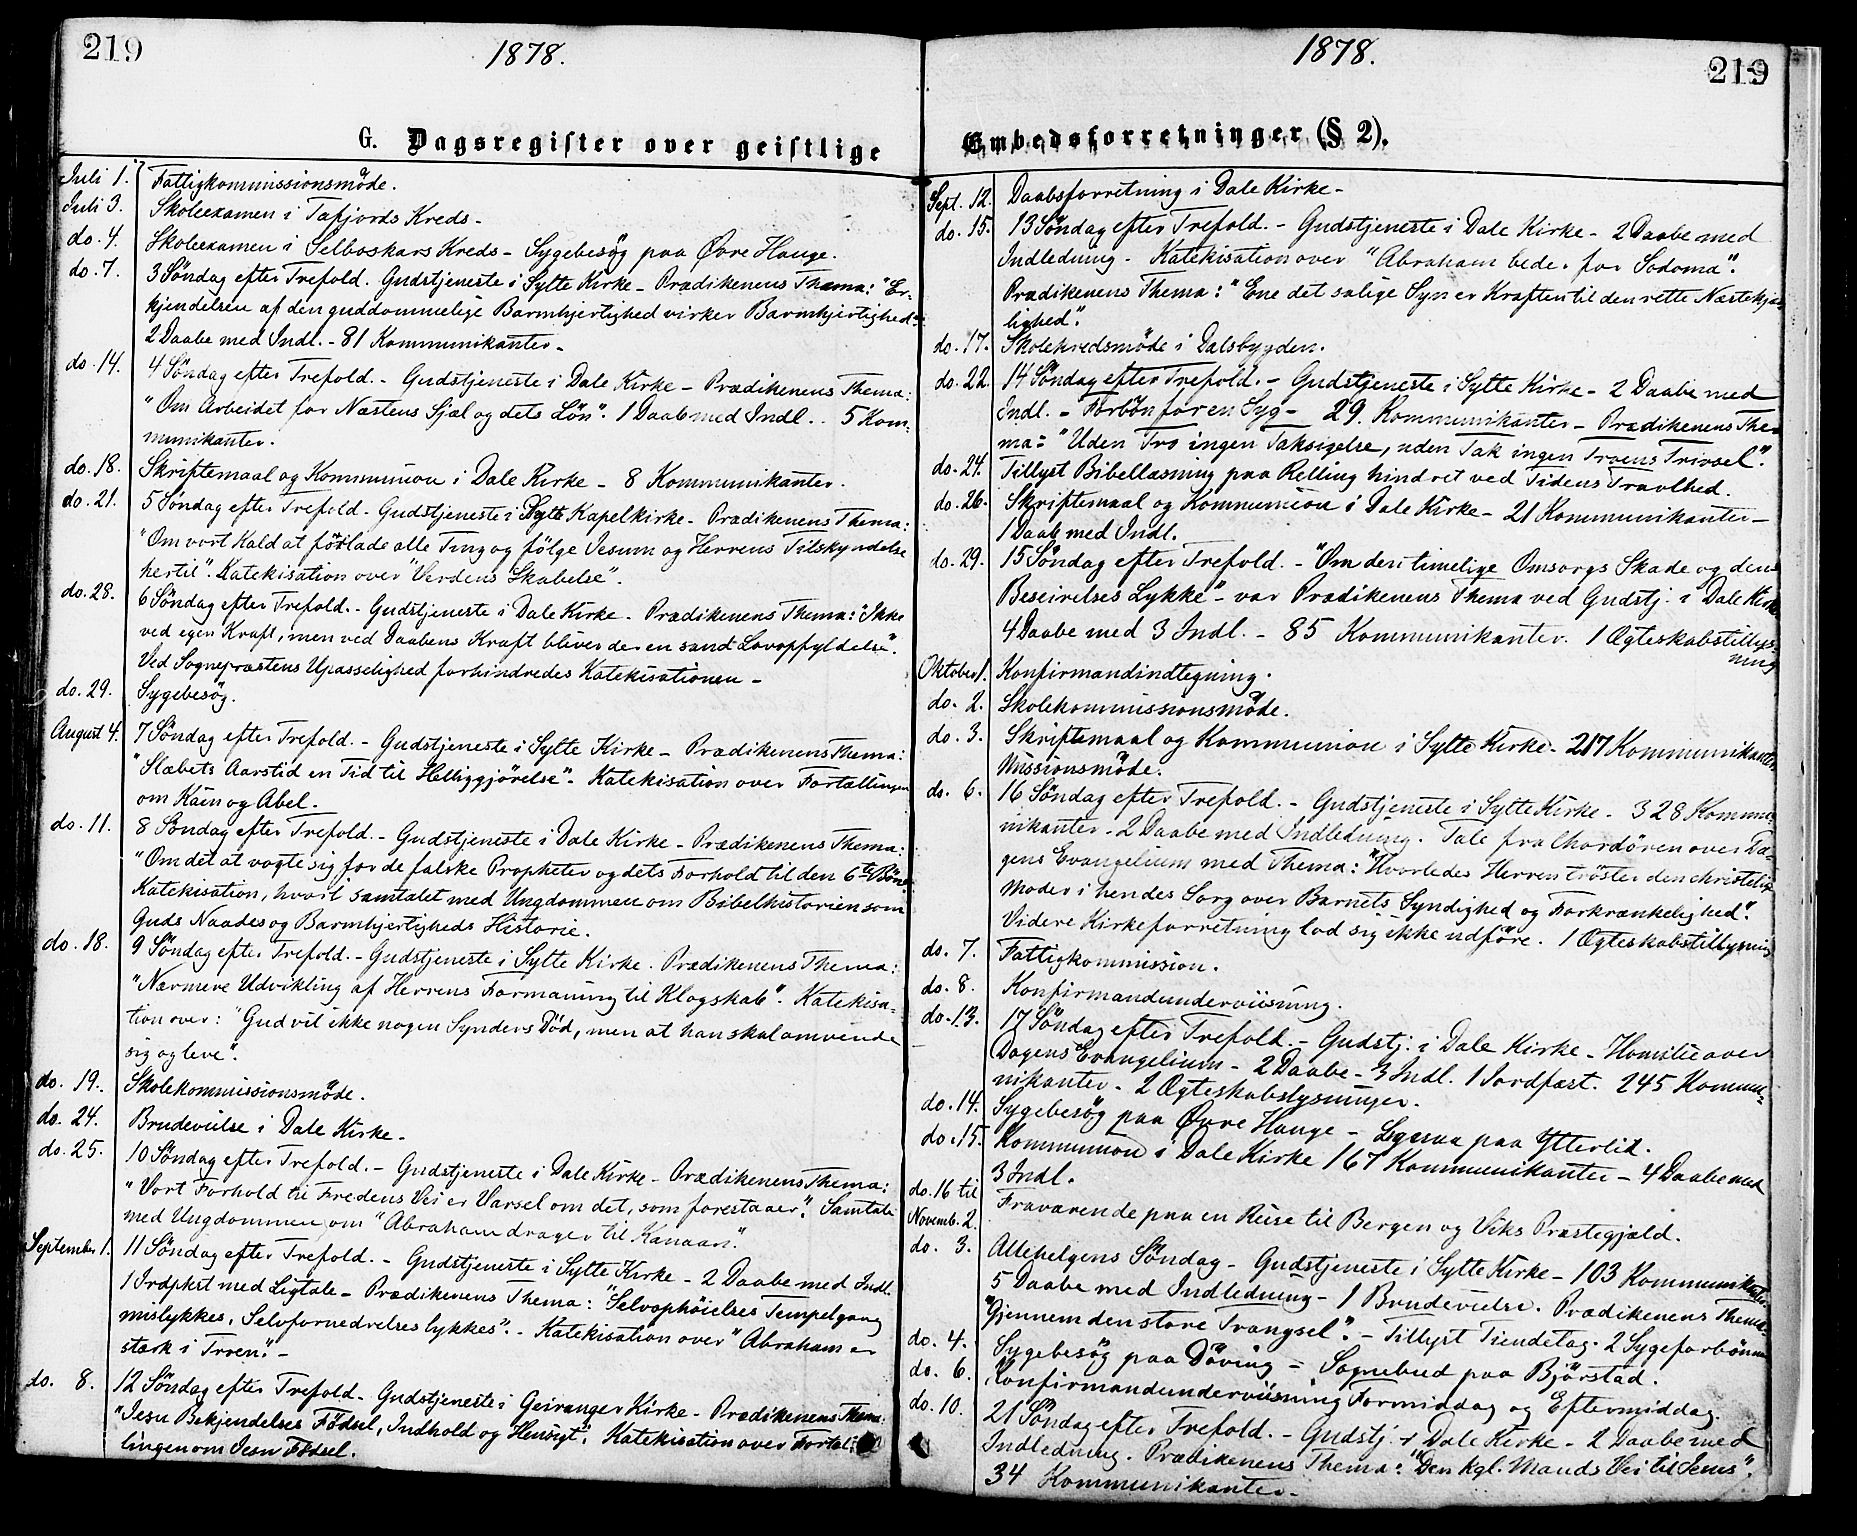 219
1878.
G. Dagsregister over geistlige
Juli 1. Fattigkommissionsmøde.
Juli 3. Skoleexamen i Tafjords Kreds -
do. 4. Skoleexamen i Selboskars Kreds - Sygebesøg paa Øvre Hauge.
do. 7. 3 Søndag efter Trefold. Gudstjeneste i Sylte Kirke - Prædikenens Thema: "Er-
kjendelsen af den guddommelige Barmhjertighed virker Barmhjertighed"
2 Daabe med Indl. - 81 Kommunikanter -
do. 14. 4 Søndag efter Trefold. - Gudstjeneste i Dale Kirke - Prædikenens Thema:
"Om Arbeidet for Næstens Sjæl og dets Løn". 1 Daab med Indl. . 5 Kom-
munikanter.
do. 18. Skriftemaal og Kommunion i Dale Kirke - 8 Kommunikanter.
do. 21. 5 Søndag efter Trefold - Gudstjeneste i Sylte Kapelkirke - Prædikenens Thema:
"Om vort Kald at forlade alle Ting og følge Jesum og Herrens Tilskyndelse
hertil". Katekisation over "Verdens Skabelse".
do. 28. 6 Søndag efter Trefold. - Gudstjeneste i Dale Kirke - Prædikenens Thema: "Ikke
ved egen Kraft, men ved Daabens Kraft bliver der en sand Lovopfyldelse".
Ved Sognepræstens Upasselighed forhindredes Katekisationen -
do. 29. Sygebesøg.
August 4. 7 Søndag efter Trefold. - Gudstjeneste i Sylte Kirke - Prædikenens Thema:
"Slæbets Aarstid en Tid til Helliggjørelse" - Katekisation over Fortællingen
om Kain og Abel -
do. 11. 8 Søndag efter Trefold. - Gudstjeneste i Dale Kirke - Prædikenens Thema:
"Om det at vogte sig for de falske Propheter og dets Forhold til den 6te Bøn"
Katekisation, hvori samtalet med Ungdommen om Bibelhistorien som
Guds Naades og Barmhjertigheds Historie.
do. 18. 9 Søndag efter Trefold. - Gudstjeneste i Sylte Kirke. Prædikenens Thema:
"Nærmere Udvikling af Herrens Formaning til Klogskab". Katekisa-
tion over: "Gud vil ikke nogen Synders Død, men at han skal omvende
sig og leve".
do. 19. Skolekommissionsmøde.
do. 24. Brudevielse i Dale Kirke -
do. 25. 10 Søndag efter Trefold. - Gudstjeneste i Dale Kirke - Prædikenens Thema:
"Vort Forhold til Fredens Vei er Varsel om det, som forestaaer". Samtale
med Ungdommen om "Abraham drager til Kanaan".
September 1. 11 Søndag efter Trefold. - Gudstjeneste i Sylte Kirke - 2 Daabe med Indl.
1 Jrdpkst med Ligtale - Prædikenens Thema: "Selvophøielses Tempelgang
mislykkes, Selvfornedrelses lykkes". - Katekisation over "Abraham er
stærk i Troen". -
do. 8. 12 Søndag efter Trefold - Gudstjeneste i Geiranger Kirke - Prædikenens Thema:
"Jesu Bekjendelses Fødsel, Indhold og Hensigt". Katekisation over Fortæl-
lingen om Jesu Fødsel.
219
1878.
Embedsforretninger (§ 2).
Sept. 12. Daabsforretning i Dale Kirke -
do. 15. 13 Søndag efter Trefold. - Gudstjeneste i Dale Kirke - 2 Daabe med
Indledning - Katekisation over "Abraham beder for Sodoma".
Prædikenens Thema: "Ene det salige Syn er Kraften til den rette Næstekjær-
lighed".
do. 17. Skolekredsmøde i Dalsbygden.
do. 22. 14 Søndag efter Trefold. - Gudstjeneste i Sylte Kirke - 2 Daabe med
Indl. - Forbøn for en Syg - 29 Kommunikanter - Prædikenens The-
ma: "Uden Tro ingen Taksigelse, uden Tak ingen Troens Trivsel".
do. 24. Tillyst Bibellæsning paa Relling hindret ved Tidens Travlhed.
do. 26. Skriftemaal og Kommunion i Dale Kirke - 21 Kommunikanter -
1 Daab med Indl.
do. 29. 15 Søndag efter Trefold. - "Om den timelige Omsorgs Skade og dens
Beseirelses Lykke" - var Prædikenens Thema ved Gudstj. i Dale Kirke
4 Daabe med 3 Indl. - 85 Kommunikanter. 1 Ægteskabstillys-
ning
Oktober 1. Konfirmandindtegning.
do. 2. Skolekommissionsmøde.
do. 3. Skriftemaal og Kommunion i Sylte Kirke - 217 Kommunikanter
Missionsmøde.
do. 6. 16 Søndag efter Trefold. - Gudstjeneste i Sylte Kirke - 328 Kommu-
nikanter - 2 Daabe med Indledning. Tale fra Chordøren over Da-
gens Evangelium med Thema: "Hvorledes Herren trøster den christelige
Moder i hendes Sorg over Barnets Syndighed og Forkrænkelighed".
Videre Kirkeforretning lod sig ikke udføre. 1 Ægteskabstillysning
do. 7. Fattigkommission.
do. 8. Konfirmandunderviisning.
do. 13. 17 Søndag efter Trefold. - Gudstj. i Dale Kirke - Homilie over
Dagens Evangelium - 2 Daabe - 3 Indl. 1 Jordfæst. 245 Kommu-
nikanter - 2 Ægteskabslysninger.
do. 14. Sygebesøg paa Øvre Hauge - paa Ytterlid.
do. 15. Kommunion i Dale Kirke 167 Kommunikanter - 4 Daabe med
3 Indl.
do. 16 til
Novemb. 2. Fraværende paa en Reise til Bergen og Viks Præstegjæld.
do. 3. Allehelgens Søndag - Gudstjeneste i Sylte Kirke - 103 Kommunikanter
5 Daabe med Indledning - 1 Brudevielse. Prædikenens Thema:
"Gjennem den store Trængsel". - Tillyst Tiendetag. 2 Sygeforbønner
do. 4. Sygebesøg paa Døving - Sognebud paa Bjørstad.
do. 6. Konfirmandunderviisning Formiddag og Eftermiddag.
do. 10. 21 Søndag efter Trefold. - Gudstj. i Dale Kirke - 2 Daabe med
Indledning. Prædikenens Thema: "Den kgl. Mands Vei til Jesus".
34 Kommunikanter -